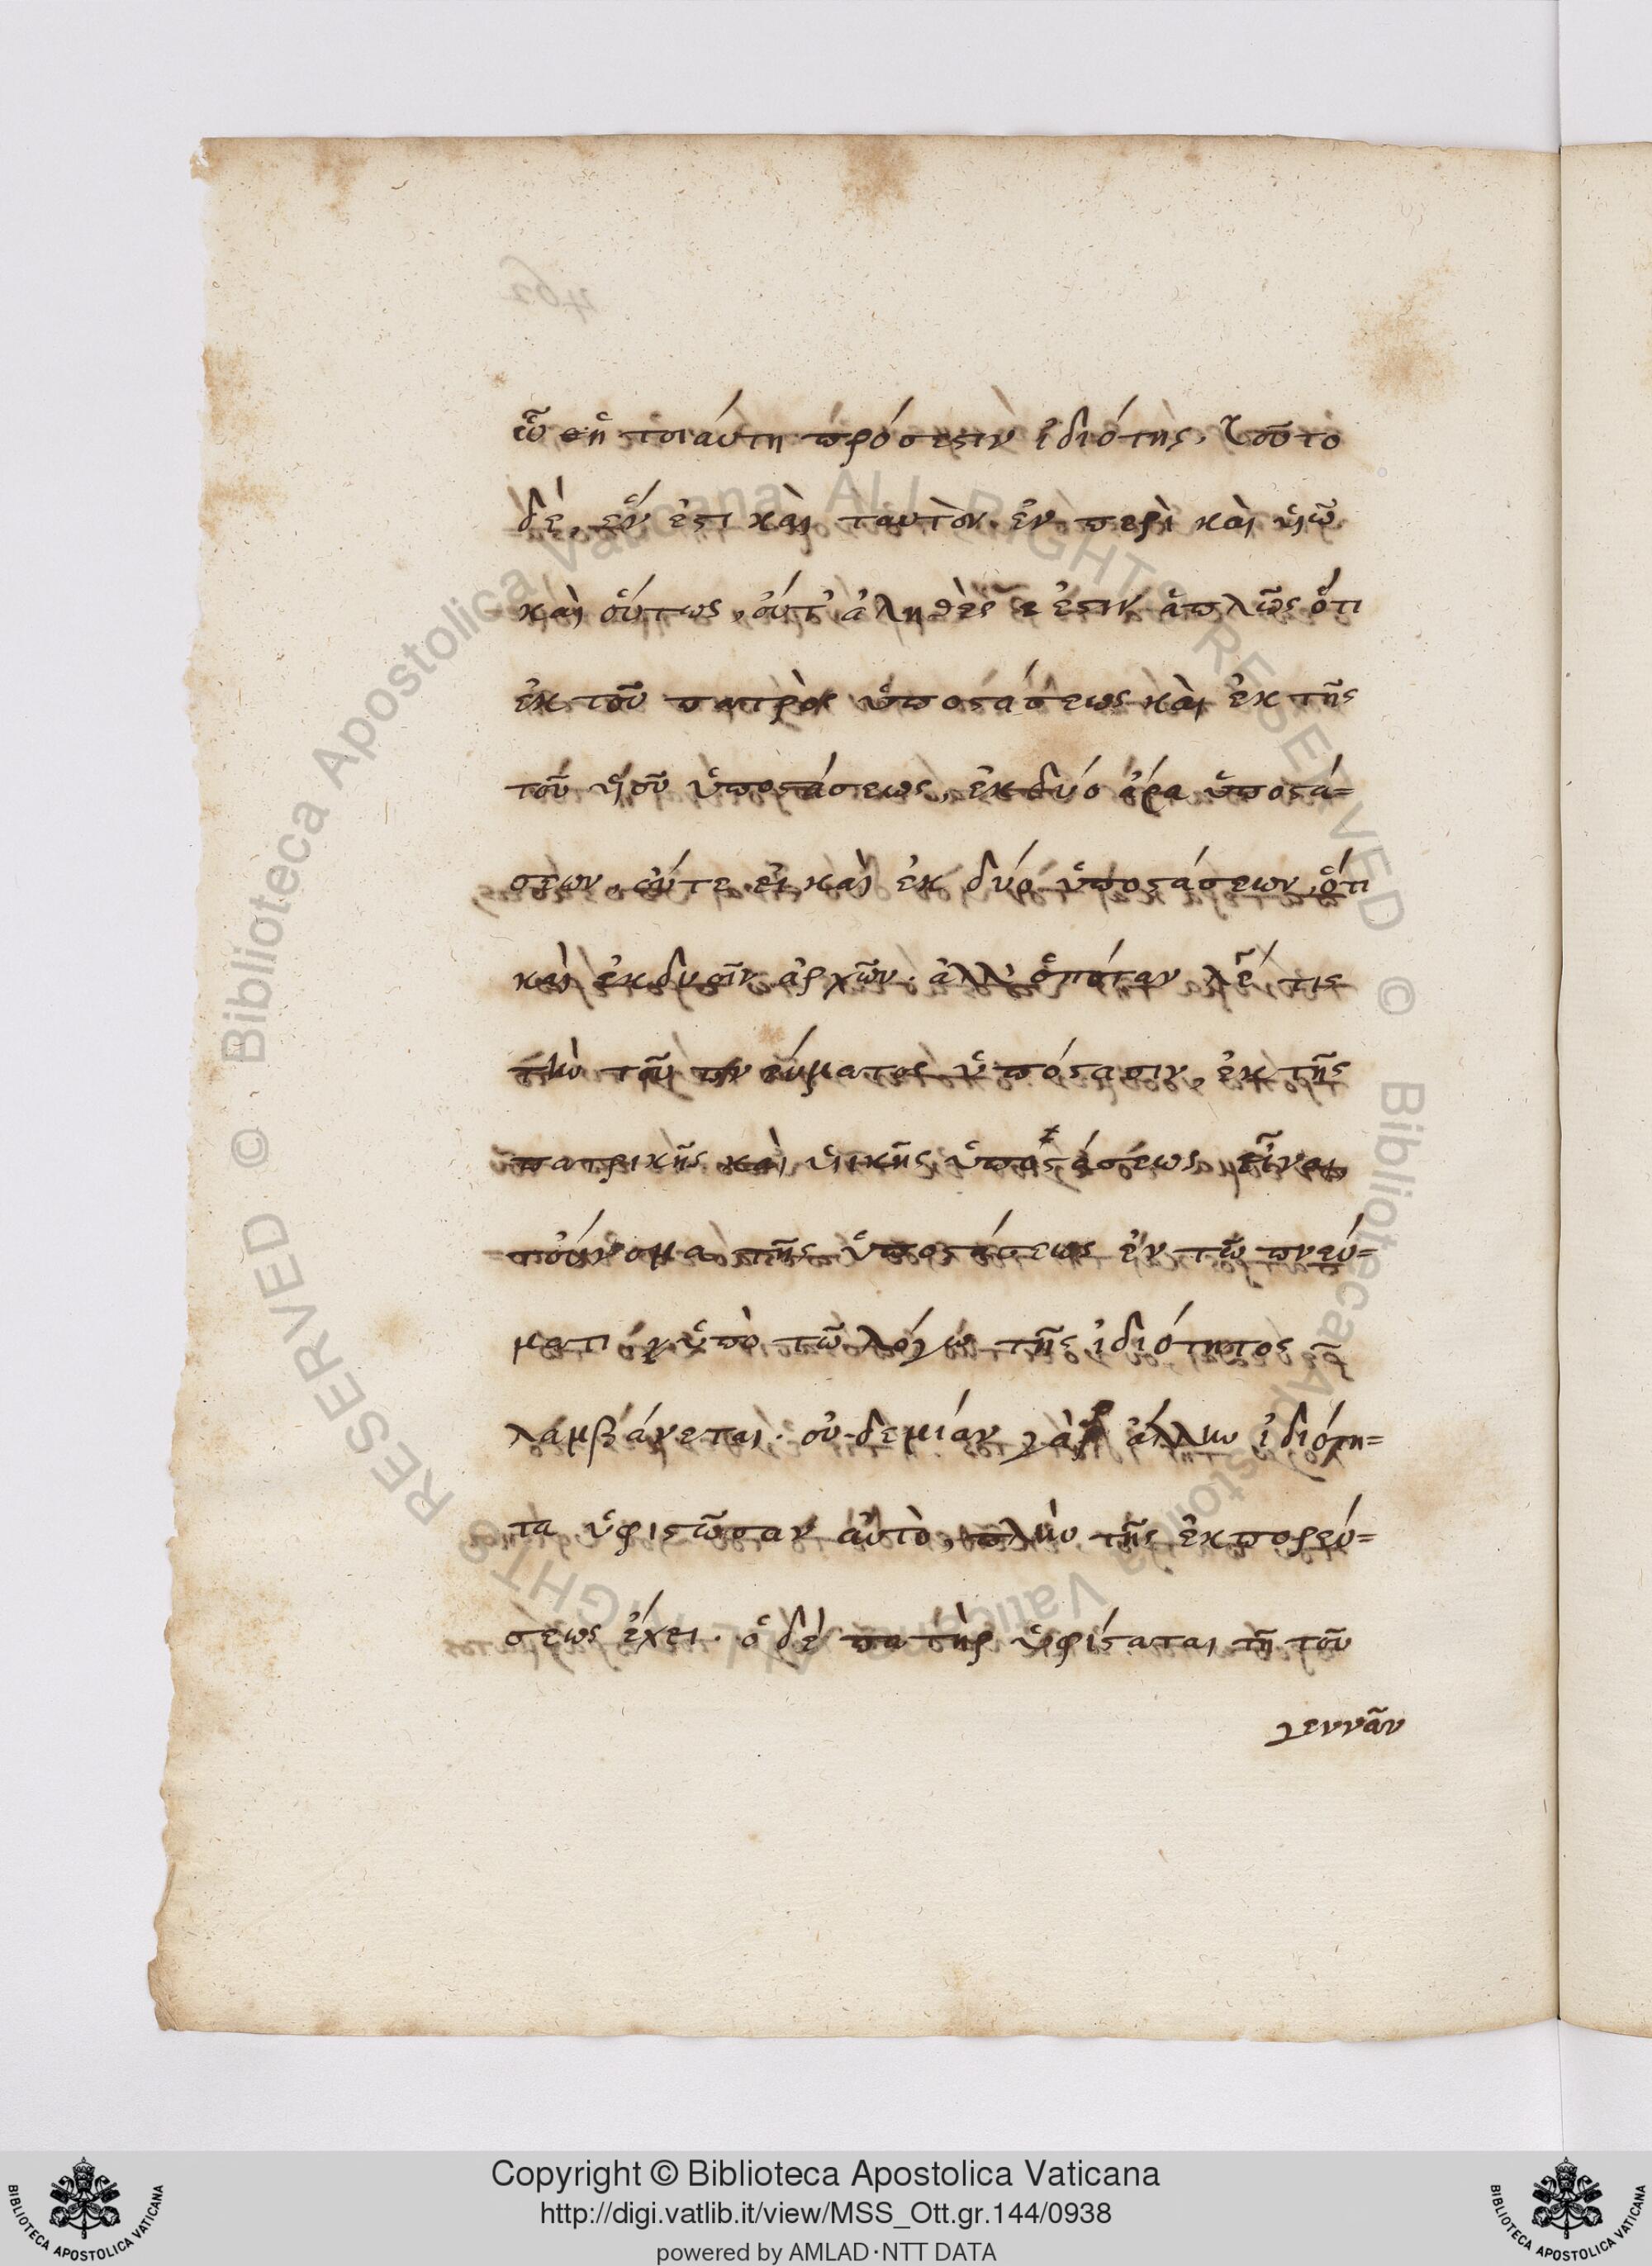 ᾧ ἡ τοιαύτη πρόσεστιν ἰδιότης, τοῦτο
δὲ, ἕν ἐστι καὶ ταυτὸν ἐν πρὶ καὶ υἱῶ
καὶ οὕτως, οὔτ' ἀληθὲς ἐστιν ἁπλῶς ὅτι
ἐκ τοῦ πατρὸς ὑποστάσεως καὶ ἐκ τῆς
τοῦ υἱοῦ ὑποστάσεως, ἐκ δύο ἄρα ὑποστά=
σεων, οὔτε εἰ καὶ ἐκ δύο ὑποστάσεων, ὅτι
καὶ ἐκ δυοῖν ἀρχῶν. ἀλλ' ὁπόταν λέ τις
τὴν τοῦ πνεύματος ὑπόστασιν, ἐκ τῆς
πατρικῆς καὶ υἱικῆς ὑποστάσεως εἶναι,
τοὔνομα τῆς ὑποστάσεως ἐν τῶ πνεύ=
ματι ὑπὸ τῶ λόγω τῆς ἰδιότητος
λαμβάνεται. οὐδεμίαν γὰρ ἄλλην ἰδιότη=
τα ὑφιστῶσαν αὐτὸ, πλὴν τῆς ἐκπορεύ=
σεως ἔχει. ὁ δὲ πατὴρ ὑφίσταται τῆ τοῦ
γεννᾶν
Copyright © Biblioteca Apostolica Vaticana
http://digi.vatlib.it/view/MSS_Ott.gr.144/0938
powered by AMLAD·NTT DATA
BIBLIOTECA APOSTOLICA VATICANA
BIBLIOTECA APOSTOLICA VATICANA
© Biblioteca Apostolica Vaticana ALL RIGHTS RESERVED
© Biblioteca Apostolica Vaticana ALL RIGHTS RESERVED